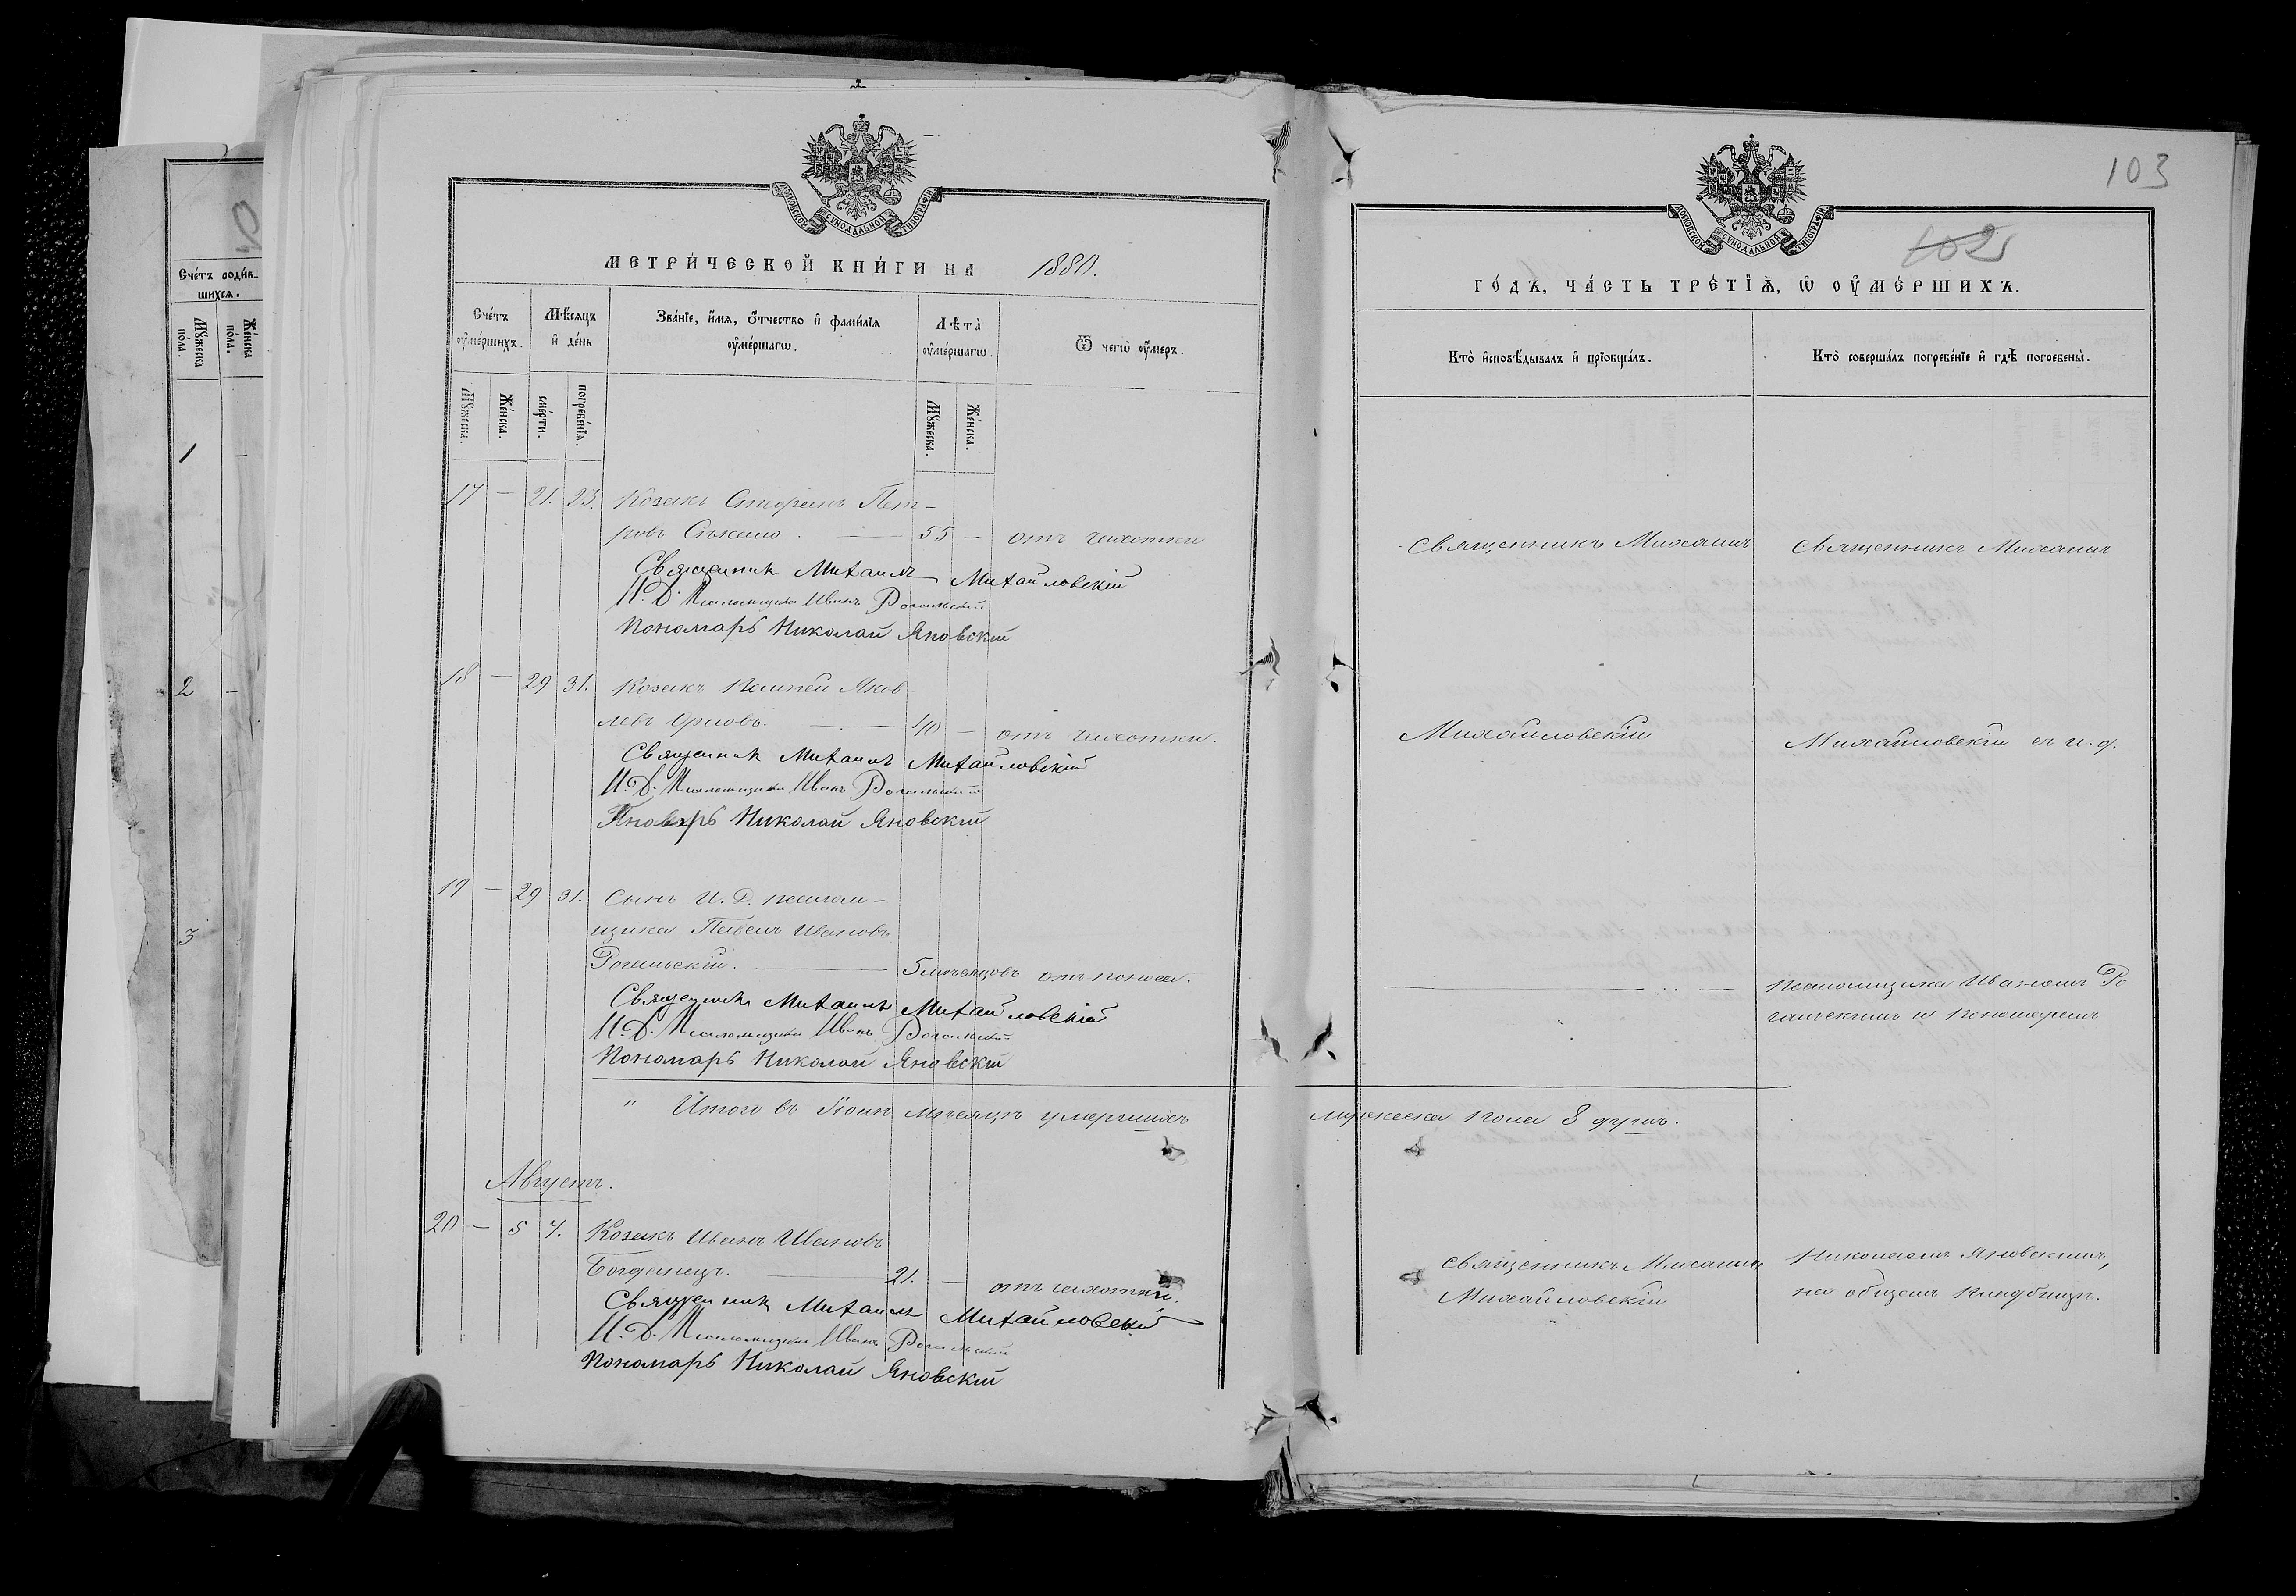 МЕТРИЧЕСКОЙ КНИГИ НА 1880.
Счетъ оумершихъ.
Мѣсяцъ и день
Званіе, имя, отчество и фамилія оумершагѡ.
Лѣта оумершагѡ.
Ѿ чегѡ оумеръ.
Мꙋжеска.
Женска.
смерти.
погребенія.
Мꙋжеска.
Женска.
17 — 21. 23. Козакъ Стефанъ Пет-
ровъ — 55 — отъ чахотки
Священникъ Михаилъ Михайловскій
И. Д. Псаломщика Иванъ Рогальскій
Пономарь Николай Яновскій
18 — 29 31. Козакъ Яков-
левъ Орловъ. — 40 — отъ чахотки.
Священникъ Михаилъ Михайловскій
И. Д. Псаломщика Иванъ Рогальскій
Николай Яновскій
19 — 29 31. Сынъ И. Д. псалом-
щика Павелъ Ивановъ
Рогальскій. — 5 мѣсяцовъ отъ поноса.
Священникъ Михаилъ Михайловскій
И. Д. Псаломщика Иванъ Рогальскій
Пономарь Николай Яновскій
" Итого въ мѣсяцѣ умершихъ
Августъ.
20 — 5 7. Козакъ Иванъ Ивановъ
Богданецъ. — 21. — отъ чахотки.
Священникъ Михаилъ Михайловскій
И. Д. Псаломщика Иванъ Рогальскій
Пономарь Николай Яновскій
103
102
ГОДЪ, ЧАСТЬ ТРЕТІЯ, Ѡ ОУМЕРШИХЪ.
Кто исповѣдывалъ и пріобщалъ.
Кто совершалъ погребеніе и гдѣ погребены.
Священникъ Михаилъ
Священникъ Михаилъ
Михайловскій
Михайловскій съ и. д.
псаломщика Иваномъ Ро
гальскимъ и пономаремъ
мужеска пола 8 душъ.
Священникъ Михаилъ
Михайловскій
Николаемъ Яновскимъ,
на общемъ кладбищѣ.
Счетъ родив-
шихся.
Мꙋжеска пола.
Женска пола.
1 —
2 —
3